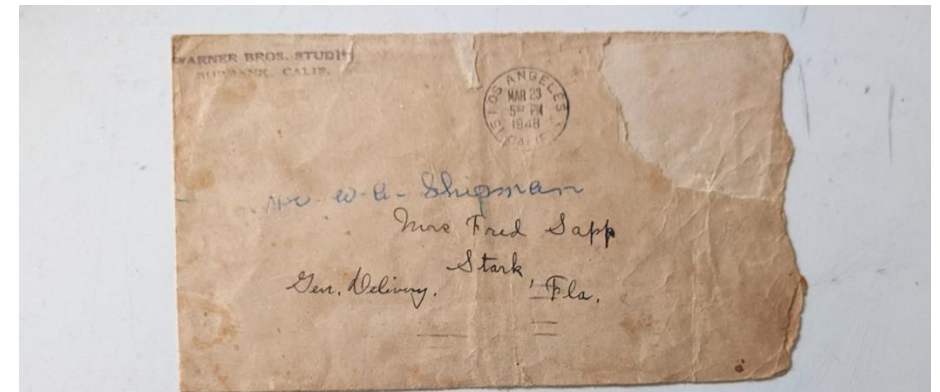 WARNER BROS. STUDIO
BURBANK, CALIF.
LOS ANGELES
MAR 23
5 PM
1948
CALIF
Mr W. A. Shipman
Mrs Fred Sapp
Stark
Gen. Delivery. Fla.